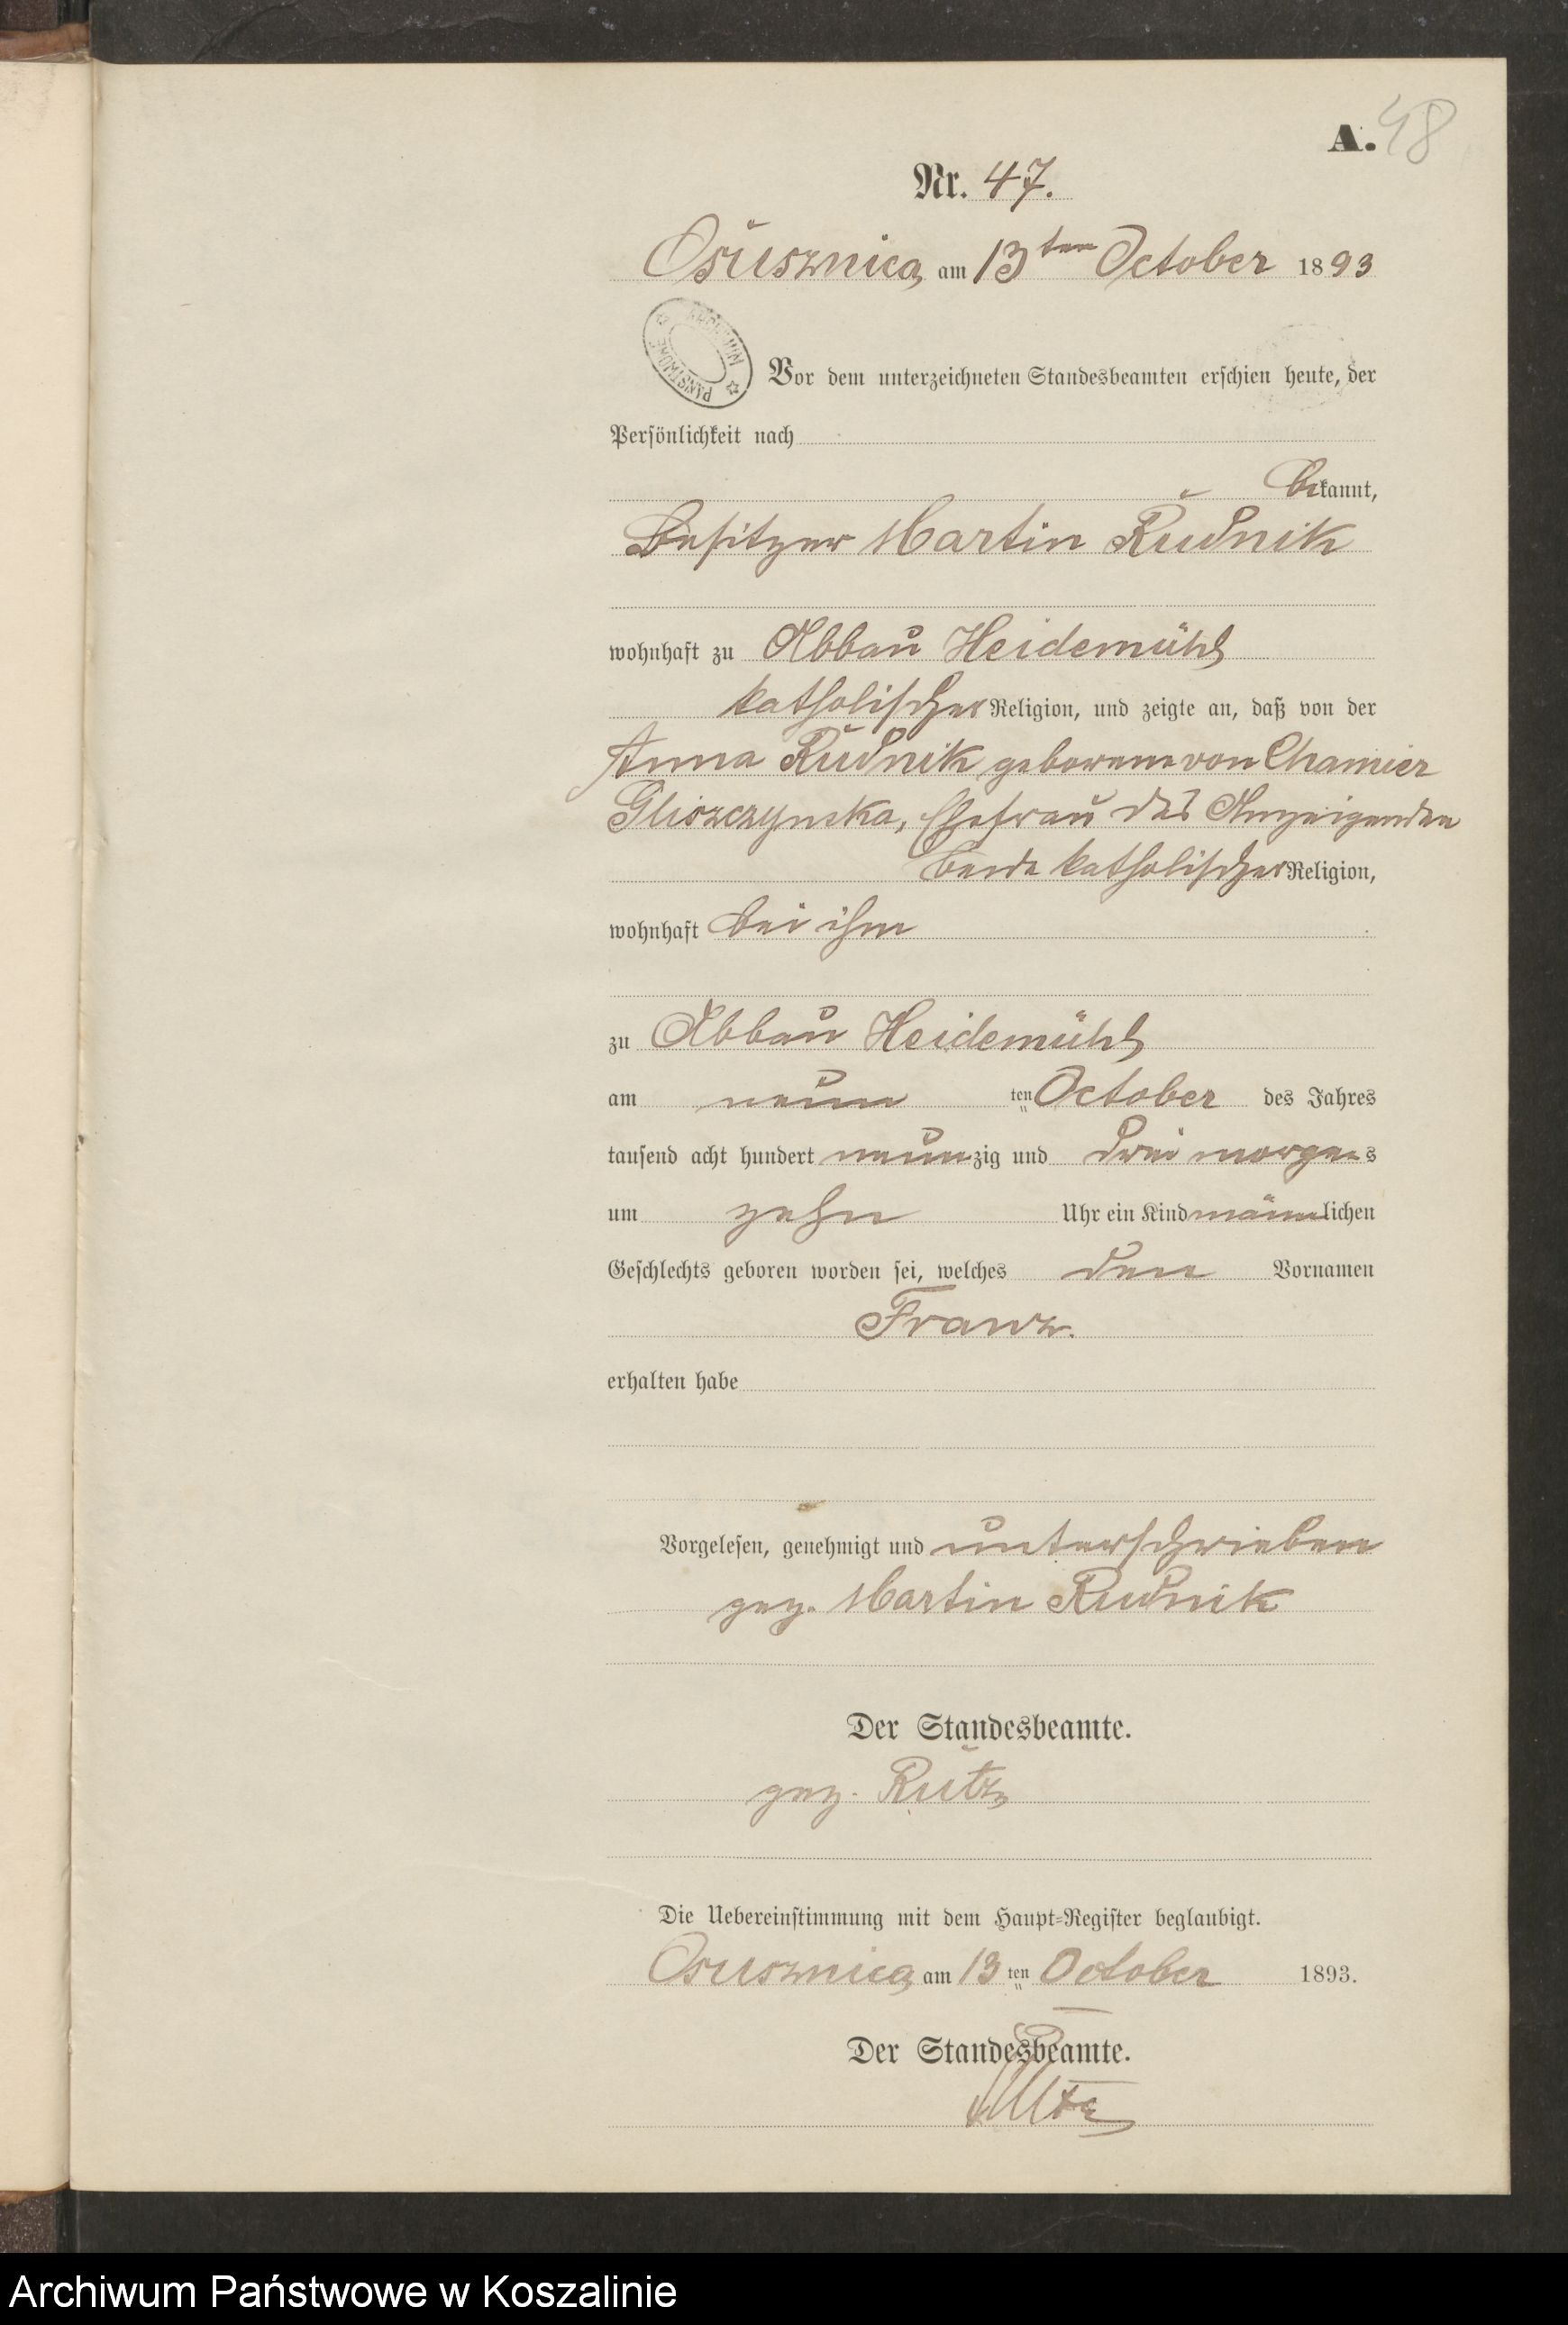 A. 48
Nr. 47.
Osusznica am 13ten October 1893
Vor dem unterzeichneten Standesbeamten erschien heute, der
Persönlichkeit nach
bekannt,
Besitzer Martin Rudnik
wohnhaft zu Abbau Heidemühl
katholischer Religion, und zeigte an, daß von der
Anna Rudnik geborene von Chamier
Gliszczynska, Ehefrau des Anzeigenden
beide katholischer Religion,
wohnhaft bei ihm
zu Abbau Heidemühl
am neun ten October des Jahres
tausend acht hundert neunzig und drei morgens
um zehn Uhr ein Kind männlichen
Geschlechts geboren worden sei, welches den Vornamen
Franz.
erhalten habe
Vorgelesen, genehmigt und unterschrieben
gez. Martin Rudnik
Der Standesbeamte.
gez. Rutz
Die Uebereinstimmung mit dem Haupt-Register beglaubigt.
Osusznica am 13 ten October 1893.
Der Standesbeamte.
Rutz
Archiwum Państwowe w Koszalinie